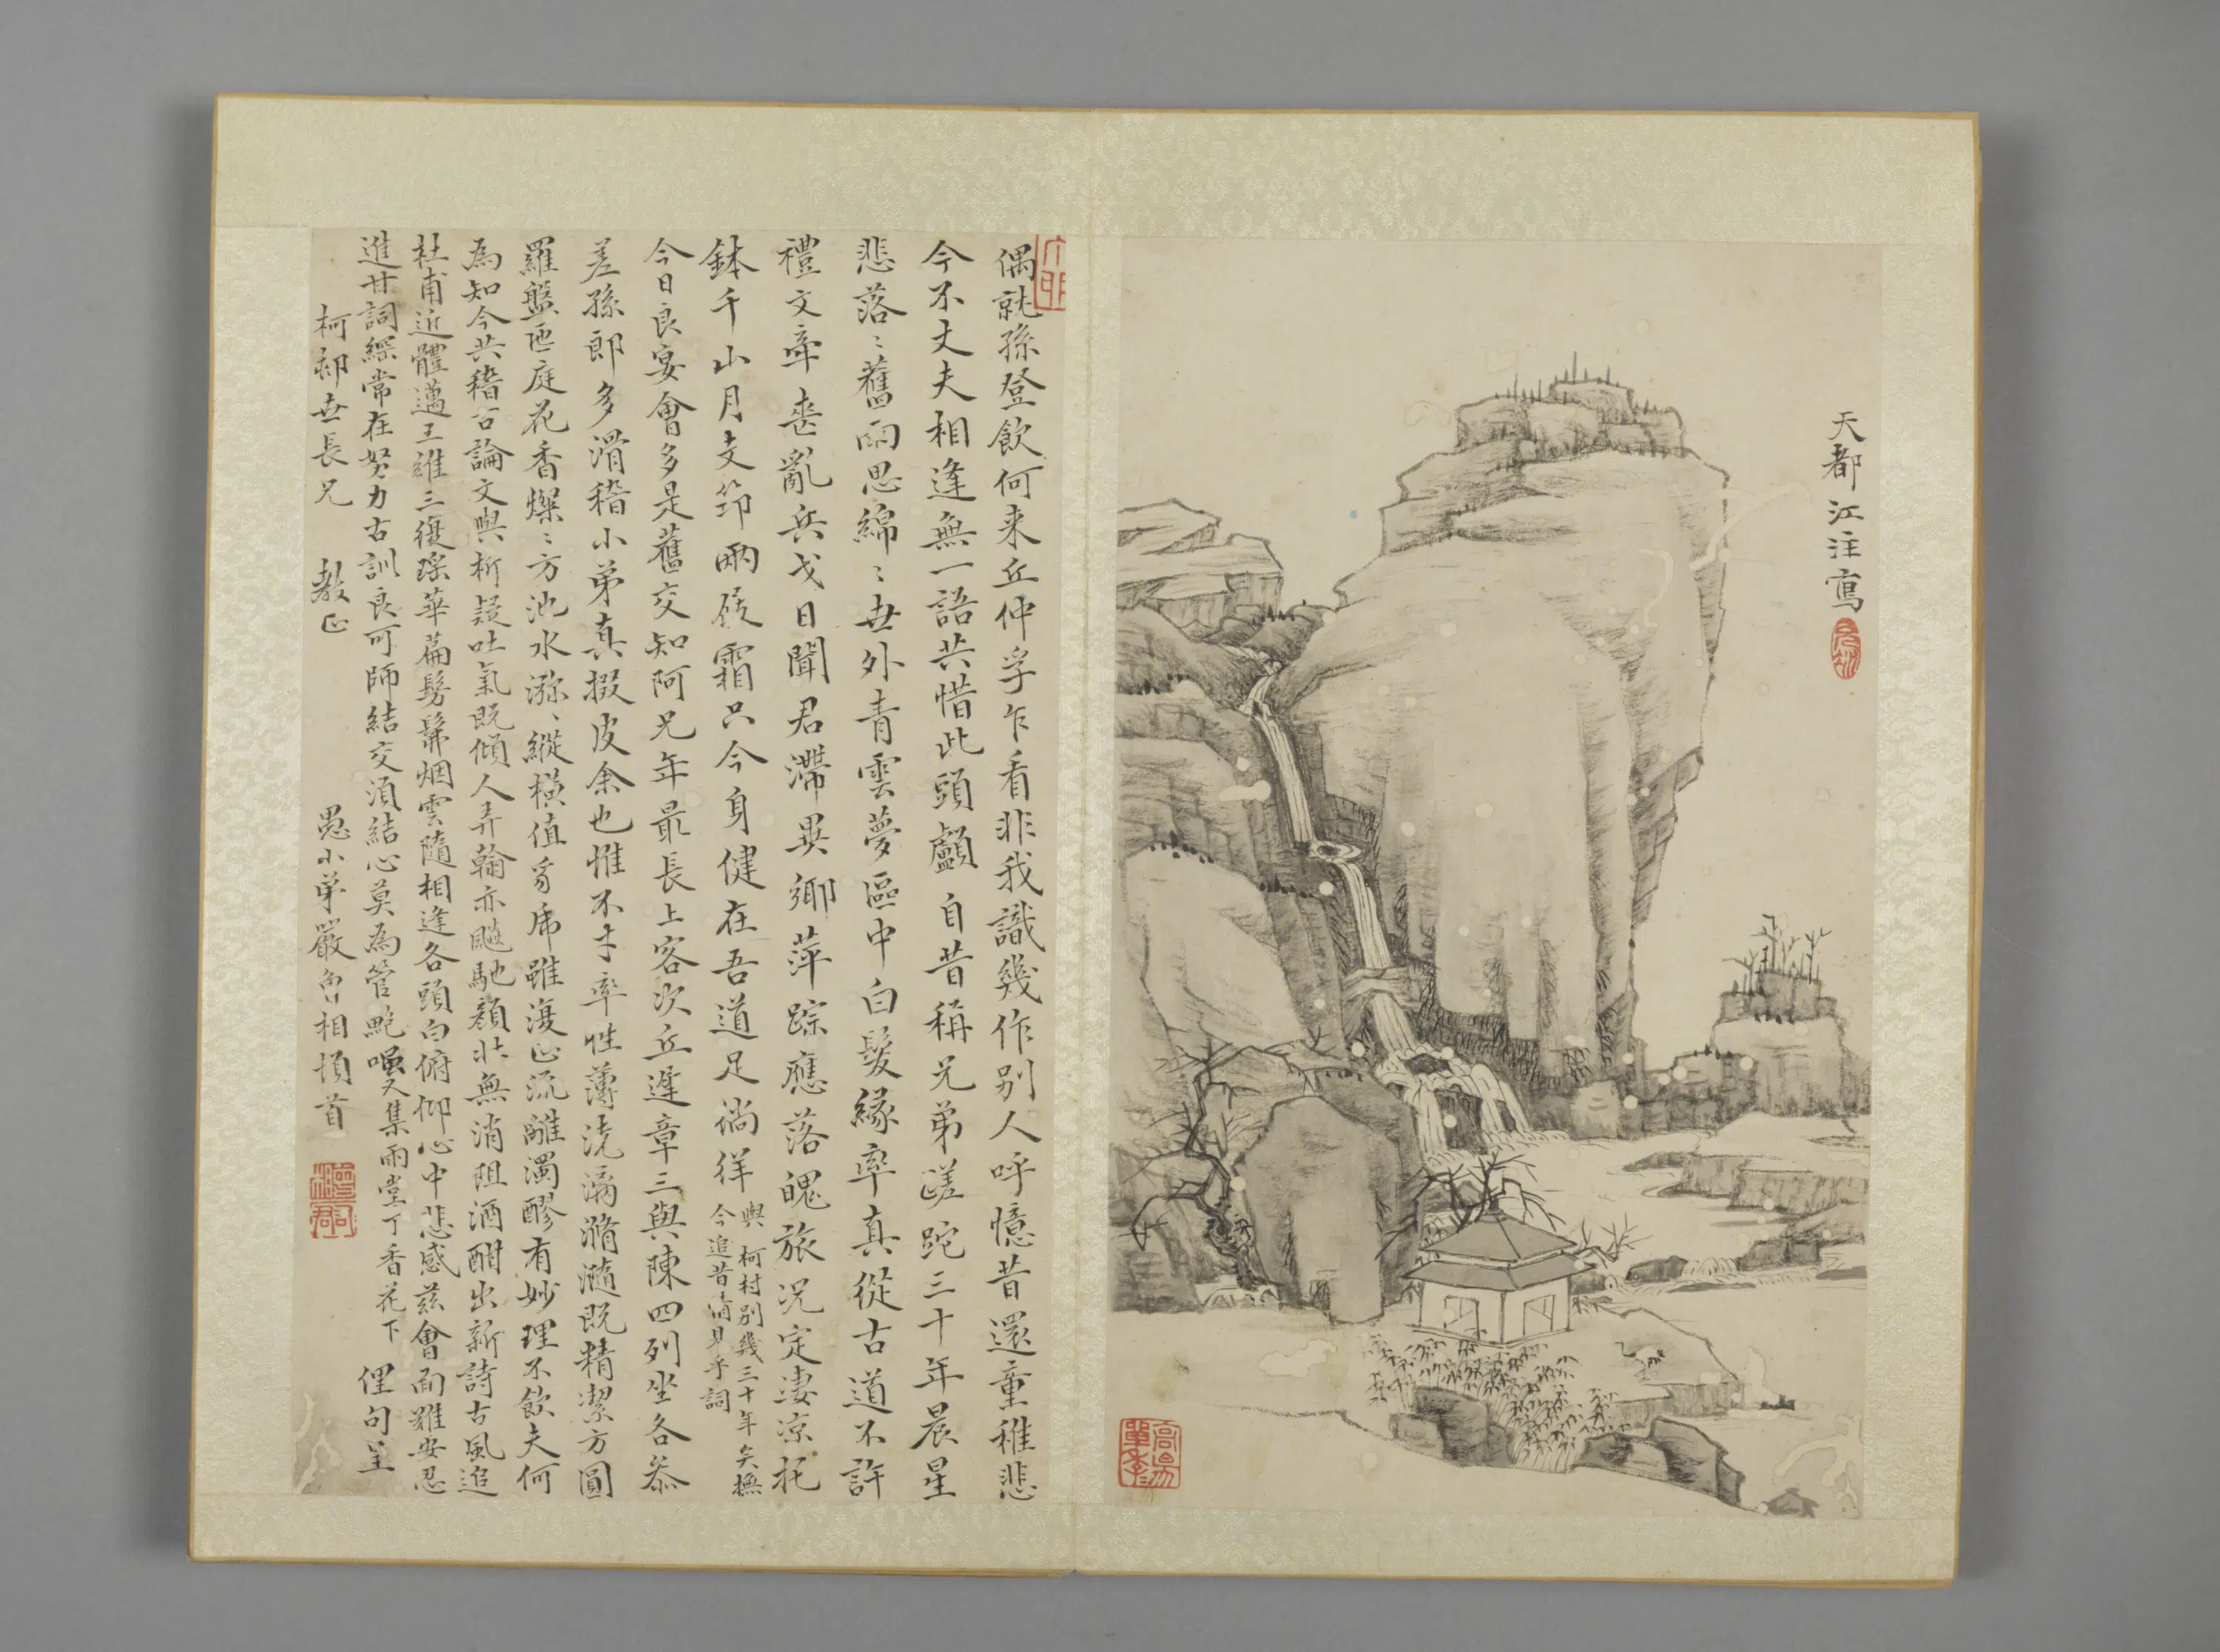 天都江注寫
偶就孫登飲何来丘仲孚乍看非我識幾作别人呼憶昔還童稚悲
今不丈夫相逢無一語共惜此頭顱自昔稱兄弟蹉跎三十年晨星
悲落〻舊雨思綿〻世外青雲夢區中白髮緣率真從古道不許
禮文牽喪亂兵戈日聞君滯異鄉萍踪應落魄旅况定淒凉托
鉢千山月支笻兩屐霜只今身健在吾道足徜徉
與柯村别幾三十年矣撫
今追昔情見乎詞
今日良宴會多是舊交知阿兄年最長上客次丘遲章三與陳四列坐各參
差孫郎多滑稽小弟真掇皮余也惟不才率性薄澆漓滫瀡既精潔方圓
羅盤匜庭花香燦〻方池水瀰〻縱横值豸虎雖復正流離濁醪有妙理不飲夫何
為知今共稽古論文與析疑吐氣既傾人弄翰亦颷馳顏壯無消阻酒酣出新詩古風追
杜甫近體邁王維三復瑤華篇髣髴烟雲隨相逢各頭白俯仰心中悲感兹會面難安忍
進甘詞綵常在努力古訓良可師結交須結心莫為管鮑嗤
又集雨堂丁香花下
俚句呈
柯邨世長兄 教正
愚小弟嚴曾相頓首